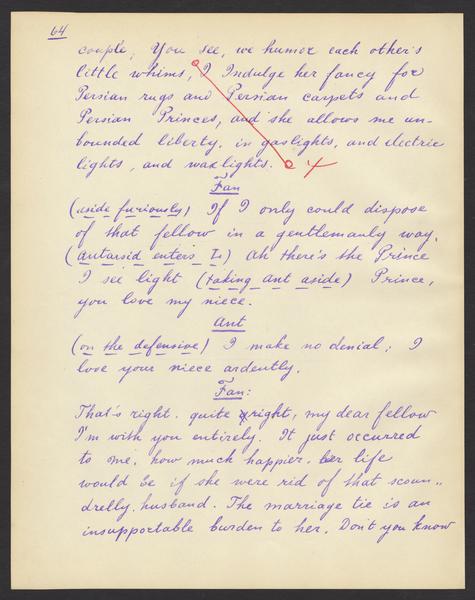 64
couple, You see, we humor each other's
little whims, I Indulge her fancy for
Persian rugs and Persian carpets and
Persian Princes, and she allows me un-
bounded liberty, in gaslights, and electric
lights, and waxlights.
Fan
(aside furiously) If I only could dispose
of that fellow in a gentlemanly way.
(Antarsid enters L) Ah there's the Prince
I see light (taking Ant aside) Prince,
you love my niece.
Ant
(on the defensive) I make no denial; I
love your niece ardently.
Fan:
That's right. quite right, my dear fellow
I'm with you entirely. It just occurred
to me, how much happier her life
would be if she were rid of that scoun-
drelly husband. The marriage tie is an
insupportable burden to her. Don't you know